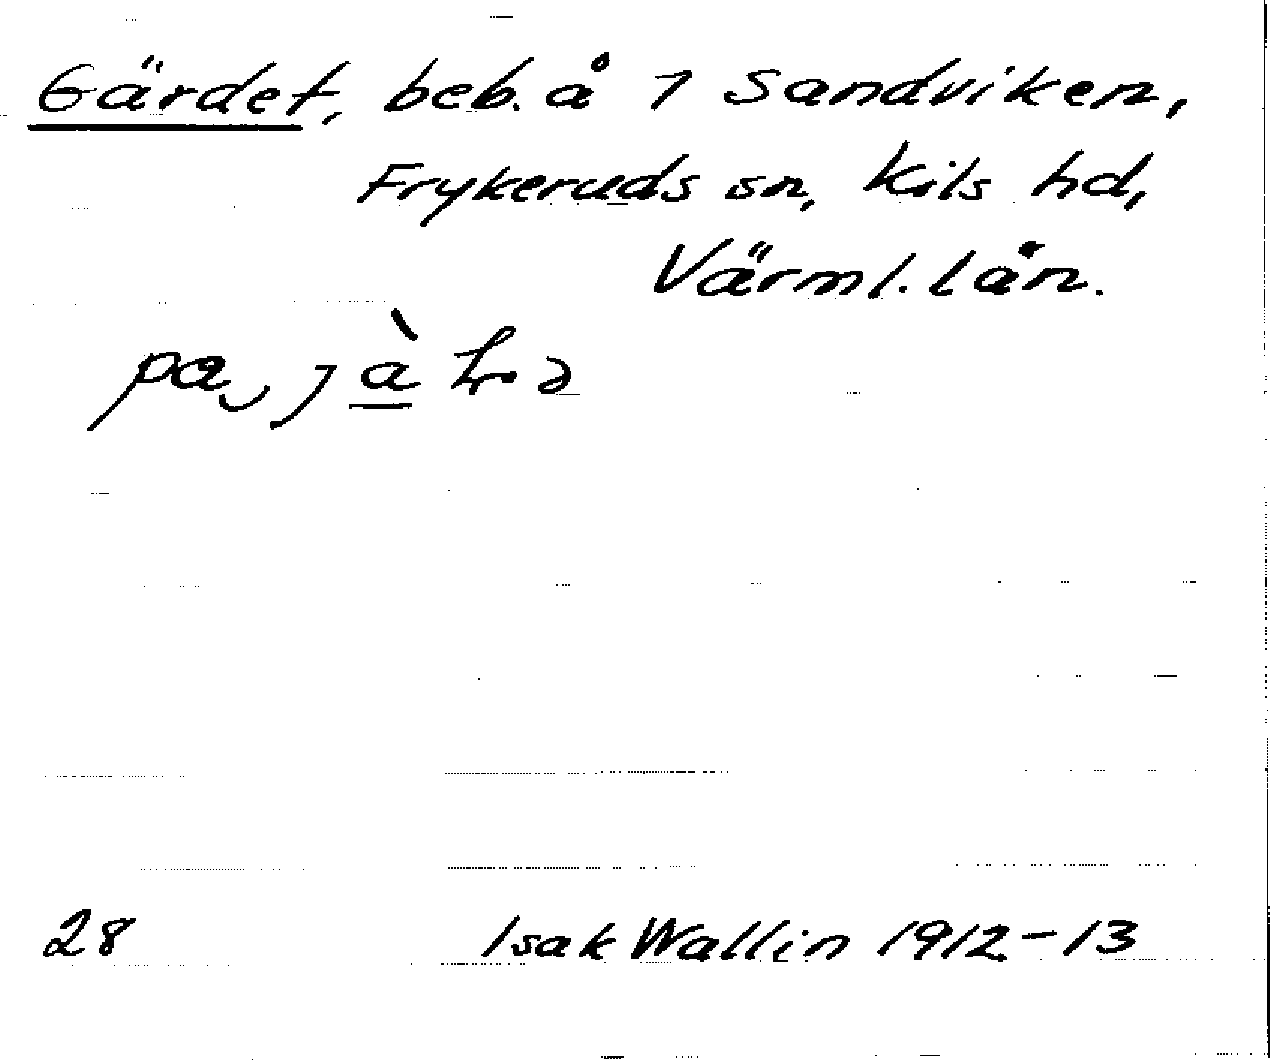 Gärdet, beb. å 1 Sandviken,
Frykeruds sn, Kils hd,
Värml. län.
28 Isak Wallin 1912-13